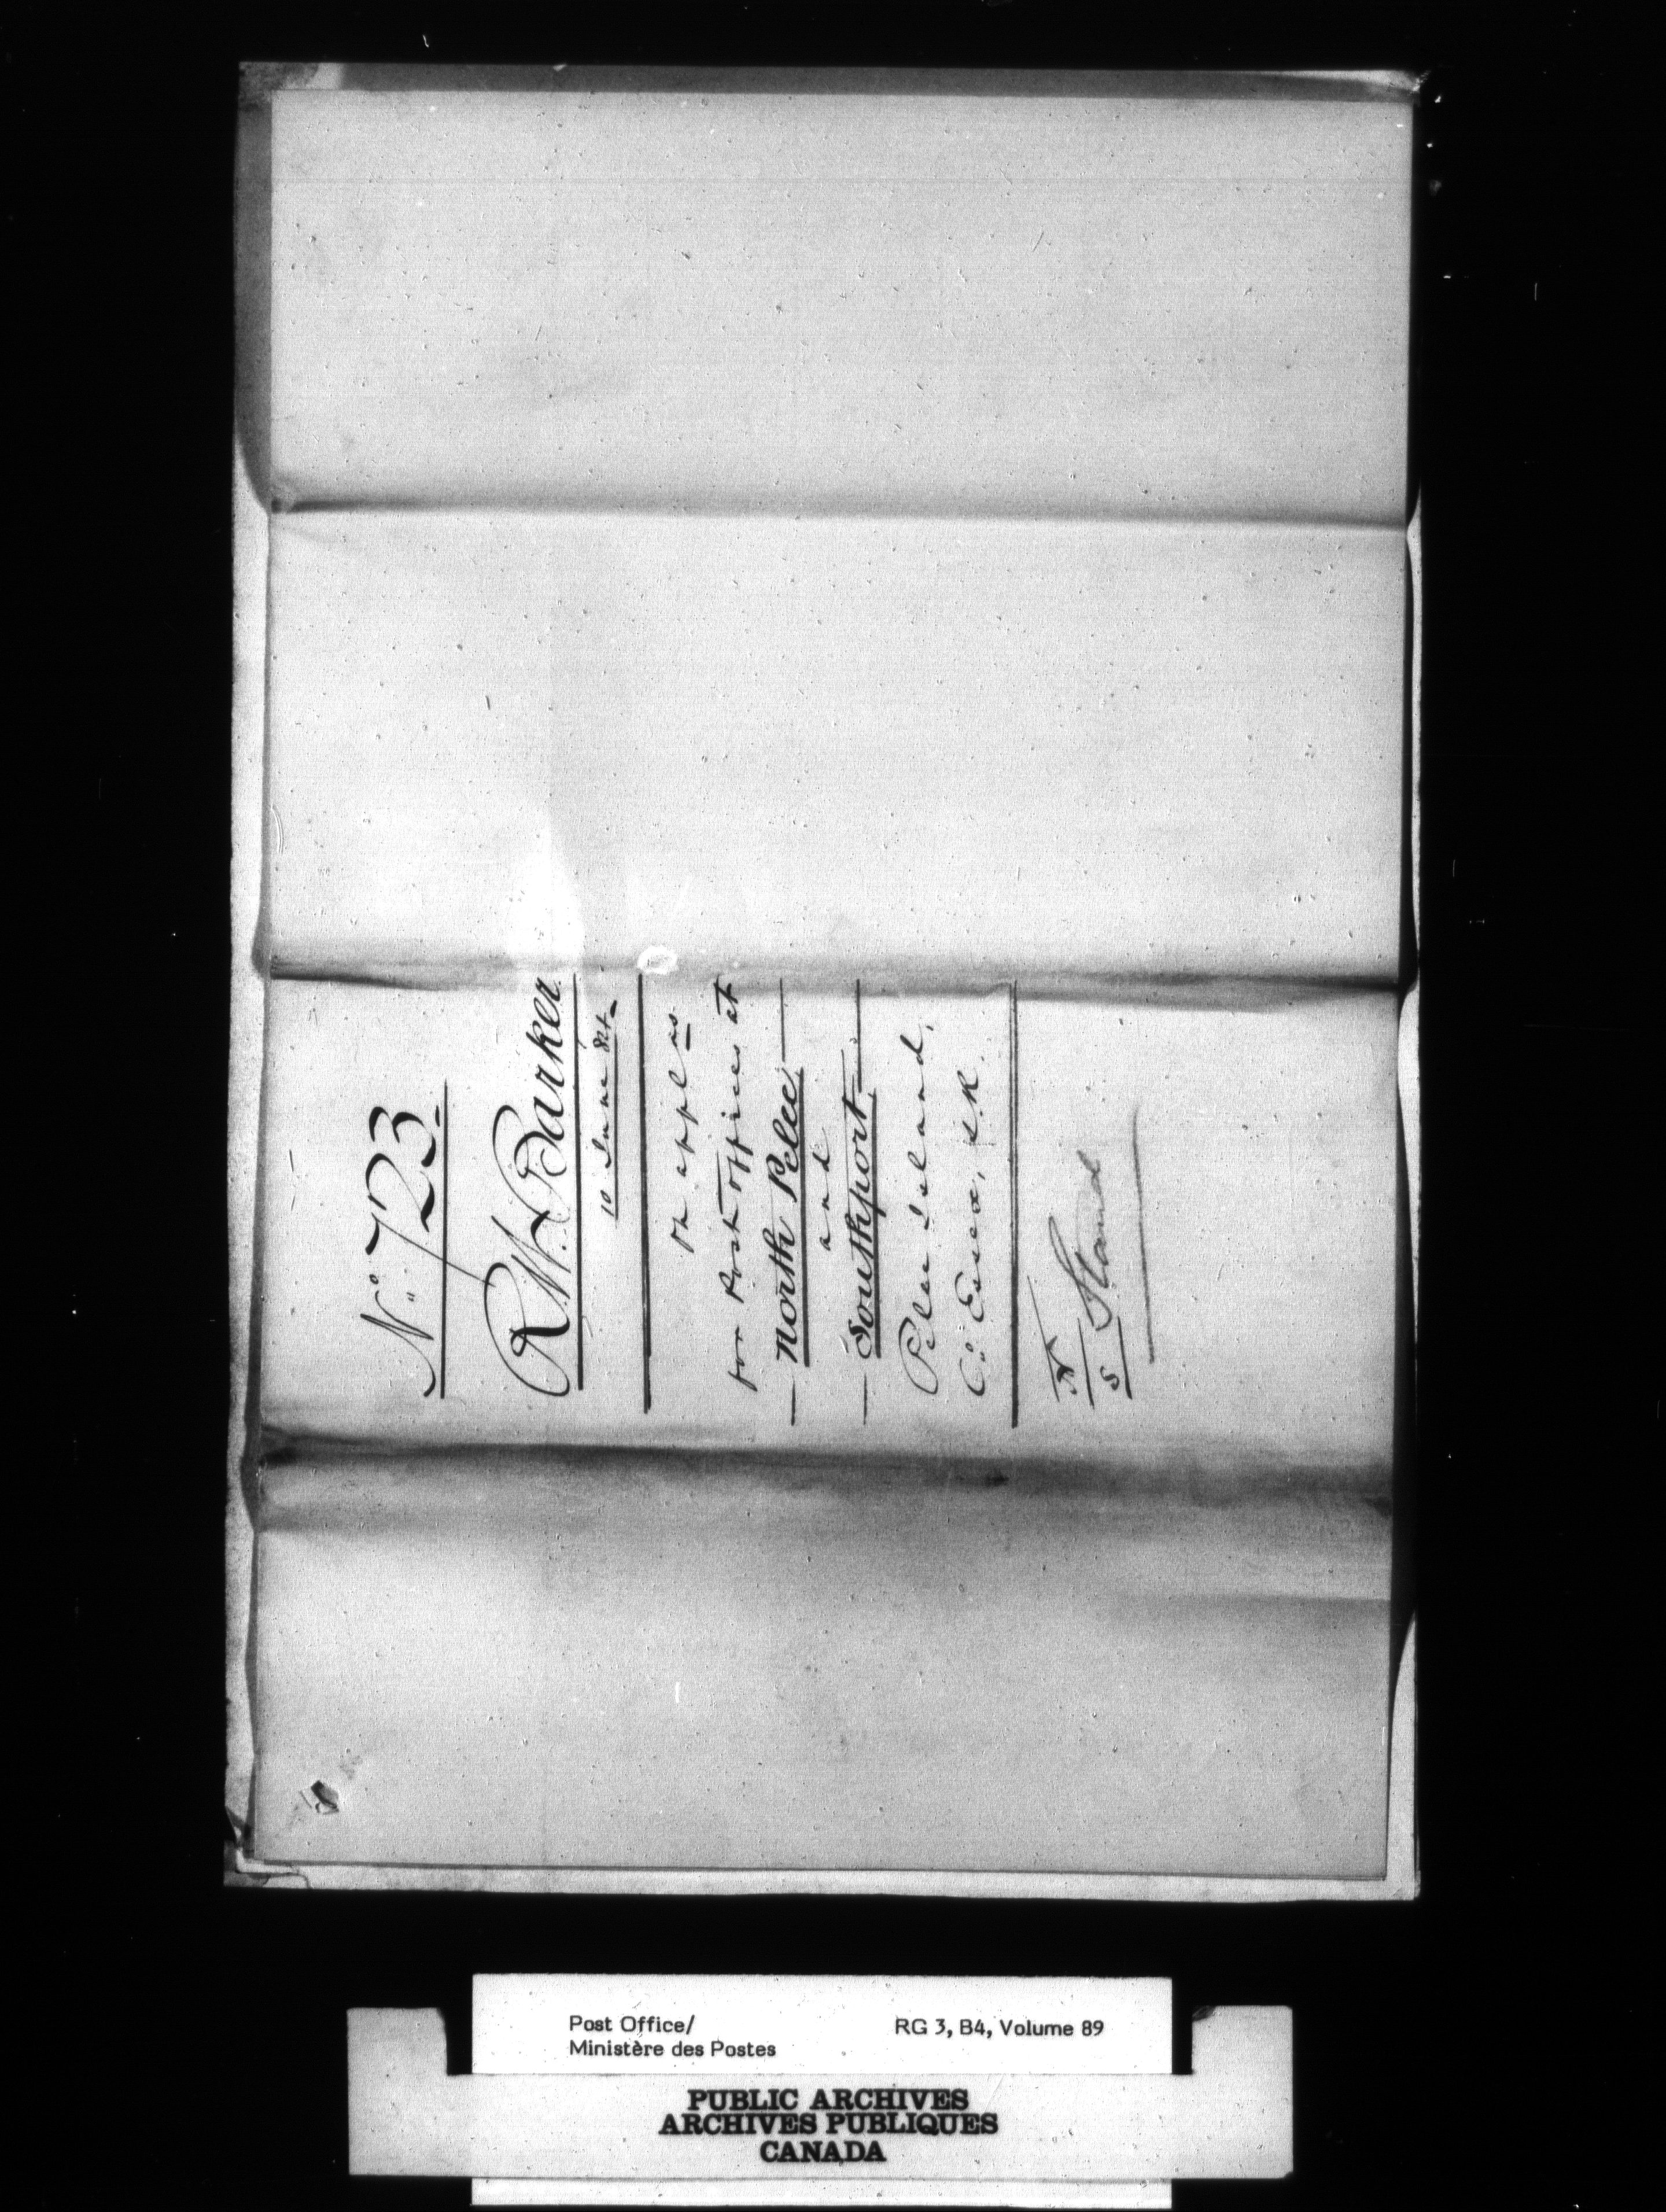 No. 723
R.W. Barker
10 June 84
On appl ns
for Post offices at
— North Pelee —
and
— Southport —
Pelee Island,
Co. Essex, S.R.
N
S Stand
Post Office/
Ministère des Postes
RG 3, B4, Volume 89
PUBLIC ARCHIVES
ARCHIVES PUBLIQUES
CANADA